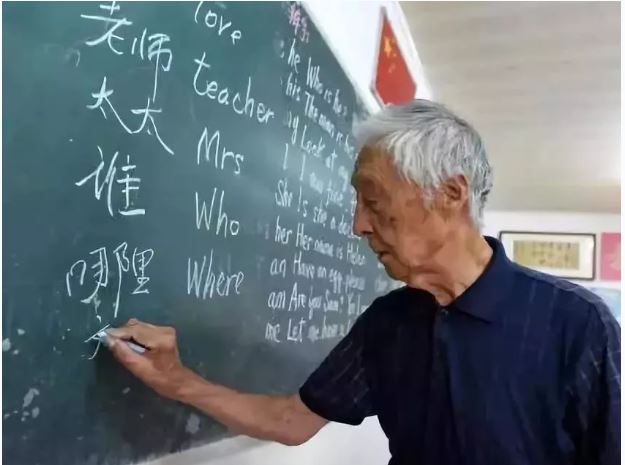 love
老师 teacher
太太 Mrs
谁 Who
哪里 Where
he Who is he
his The man is
Look at
I I
She Is she a
her Her name is Helen
an Have an egg please
am Are you Sam?
me Let me have a